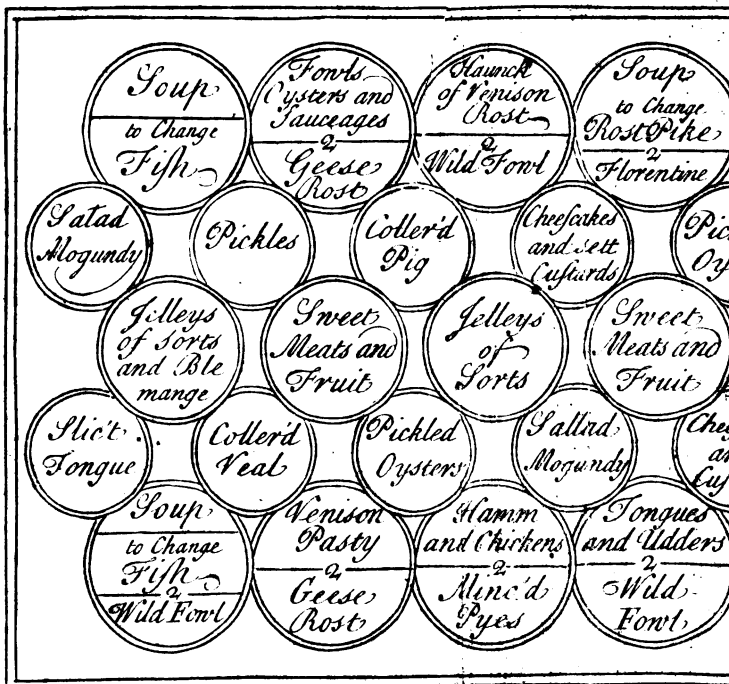 Soup
to Change
Fish
Fowls
Oysters and
Sauceages
2
Geese
Rost
Haunck
of Venison
Rost
2
Wild Fowl
Soup
to Change
Rost Pike
2
Florentine
Salad
Mogundy
Pickles
Coller'd
Pig
Cheescakes
and Sett
Custards
Pic
Oy
Jelleys
of Sorts
and Ble
mange
Sweet
Meats and
Fruit
Jelleys
of
Sorts
Sweet
Meats and
Fruit
Slic't
Tongue
Coller'd
Veal
Pickled
Oysters
Sallad
Mogundy
Chee
an
Cus
Soup
to Change
Fish
2
Wild Fowl
Venison
Pasty
2
Geese
Rost
Hamm
and Chickens
2
Minc'd
Pyes
Tongues
and Udders
2
Wild
Fowl